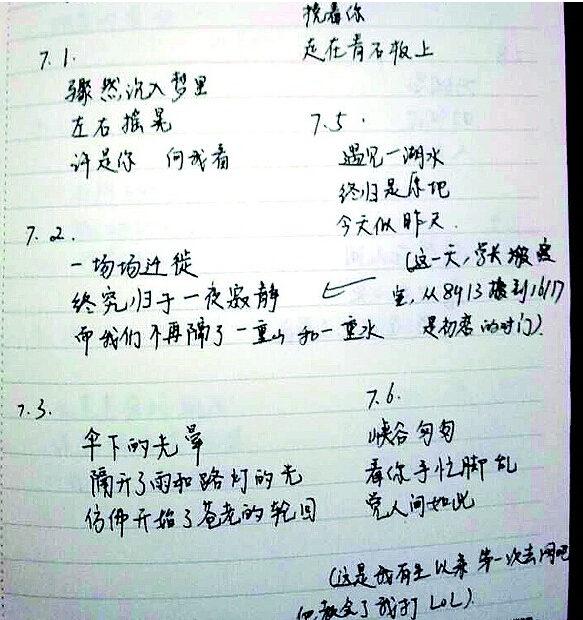 7.1.
骤然沉入梦里
左右摇晃
许是你 向我看
7.2.
一场场迁徙
终究归于一夜寂静
而我们不再隔了一重山和一重水
7.3.
伞下的光晕
隔开了雨和路灯的光
仿佛开始了苍老的轮回
挽着你
走在青石板上
7.5.
遇见一湖水
终归是原地
今天似昨天.
(这一天,学长搬寝
室,从8413搬到1617
是初恋的对门).
7.6.
峡谷匆匆
看你手忙脚乱
觉人间如此
(这是我有生以来第一次去网吧
他教会了我打LOL).